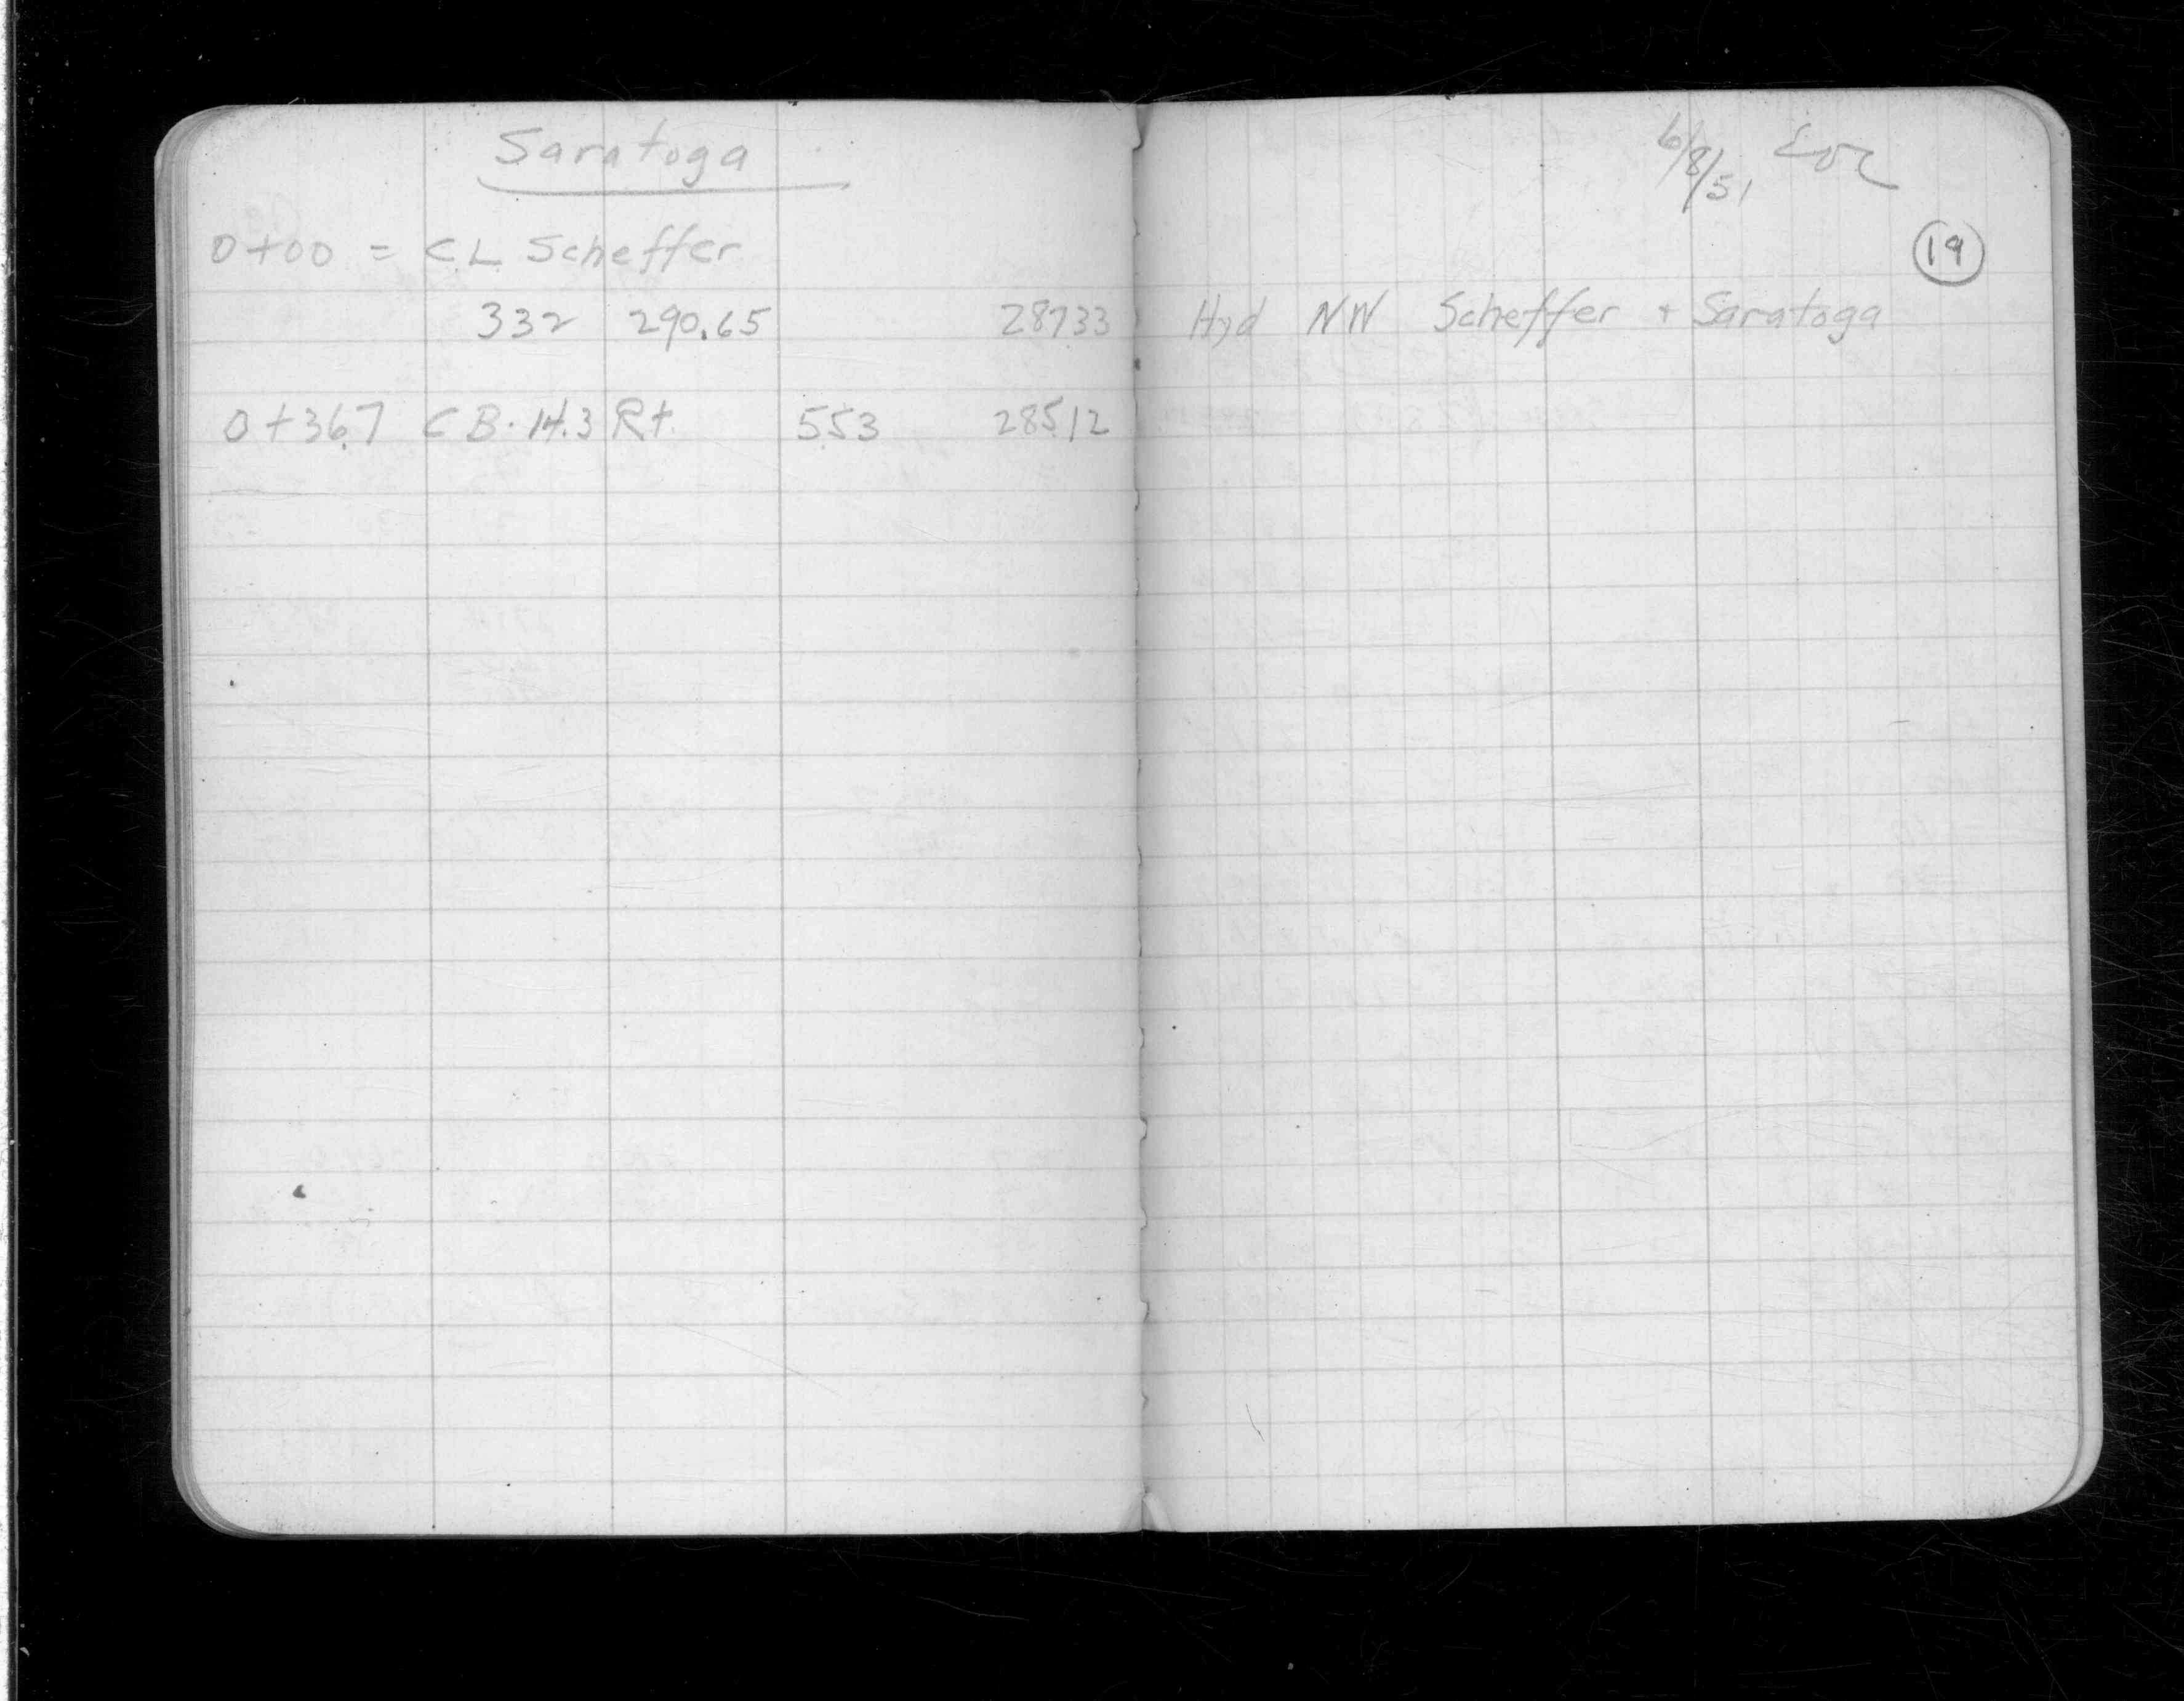 Saratoga
0+00 = CL Scheffer
332 290.65 287.33
0+36.7 CB. 14.3 Rt. 5.53 285.12
6/8/51
19
Hyd NW Scheffer + Saratoga